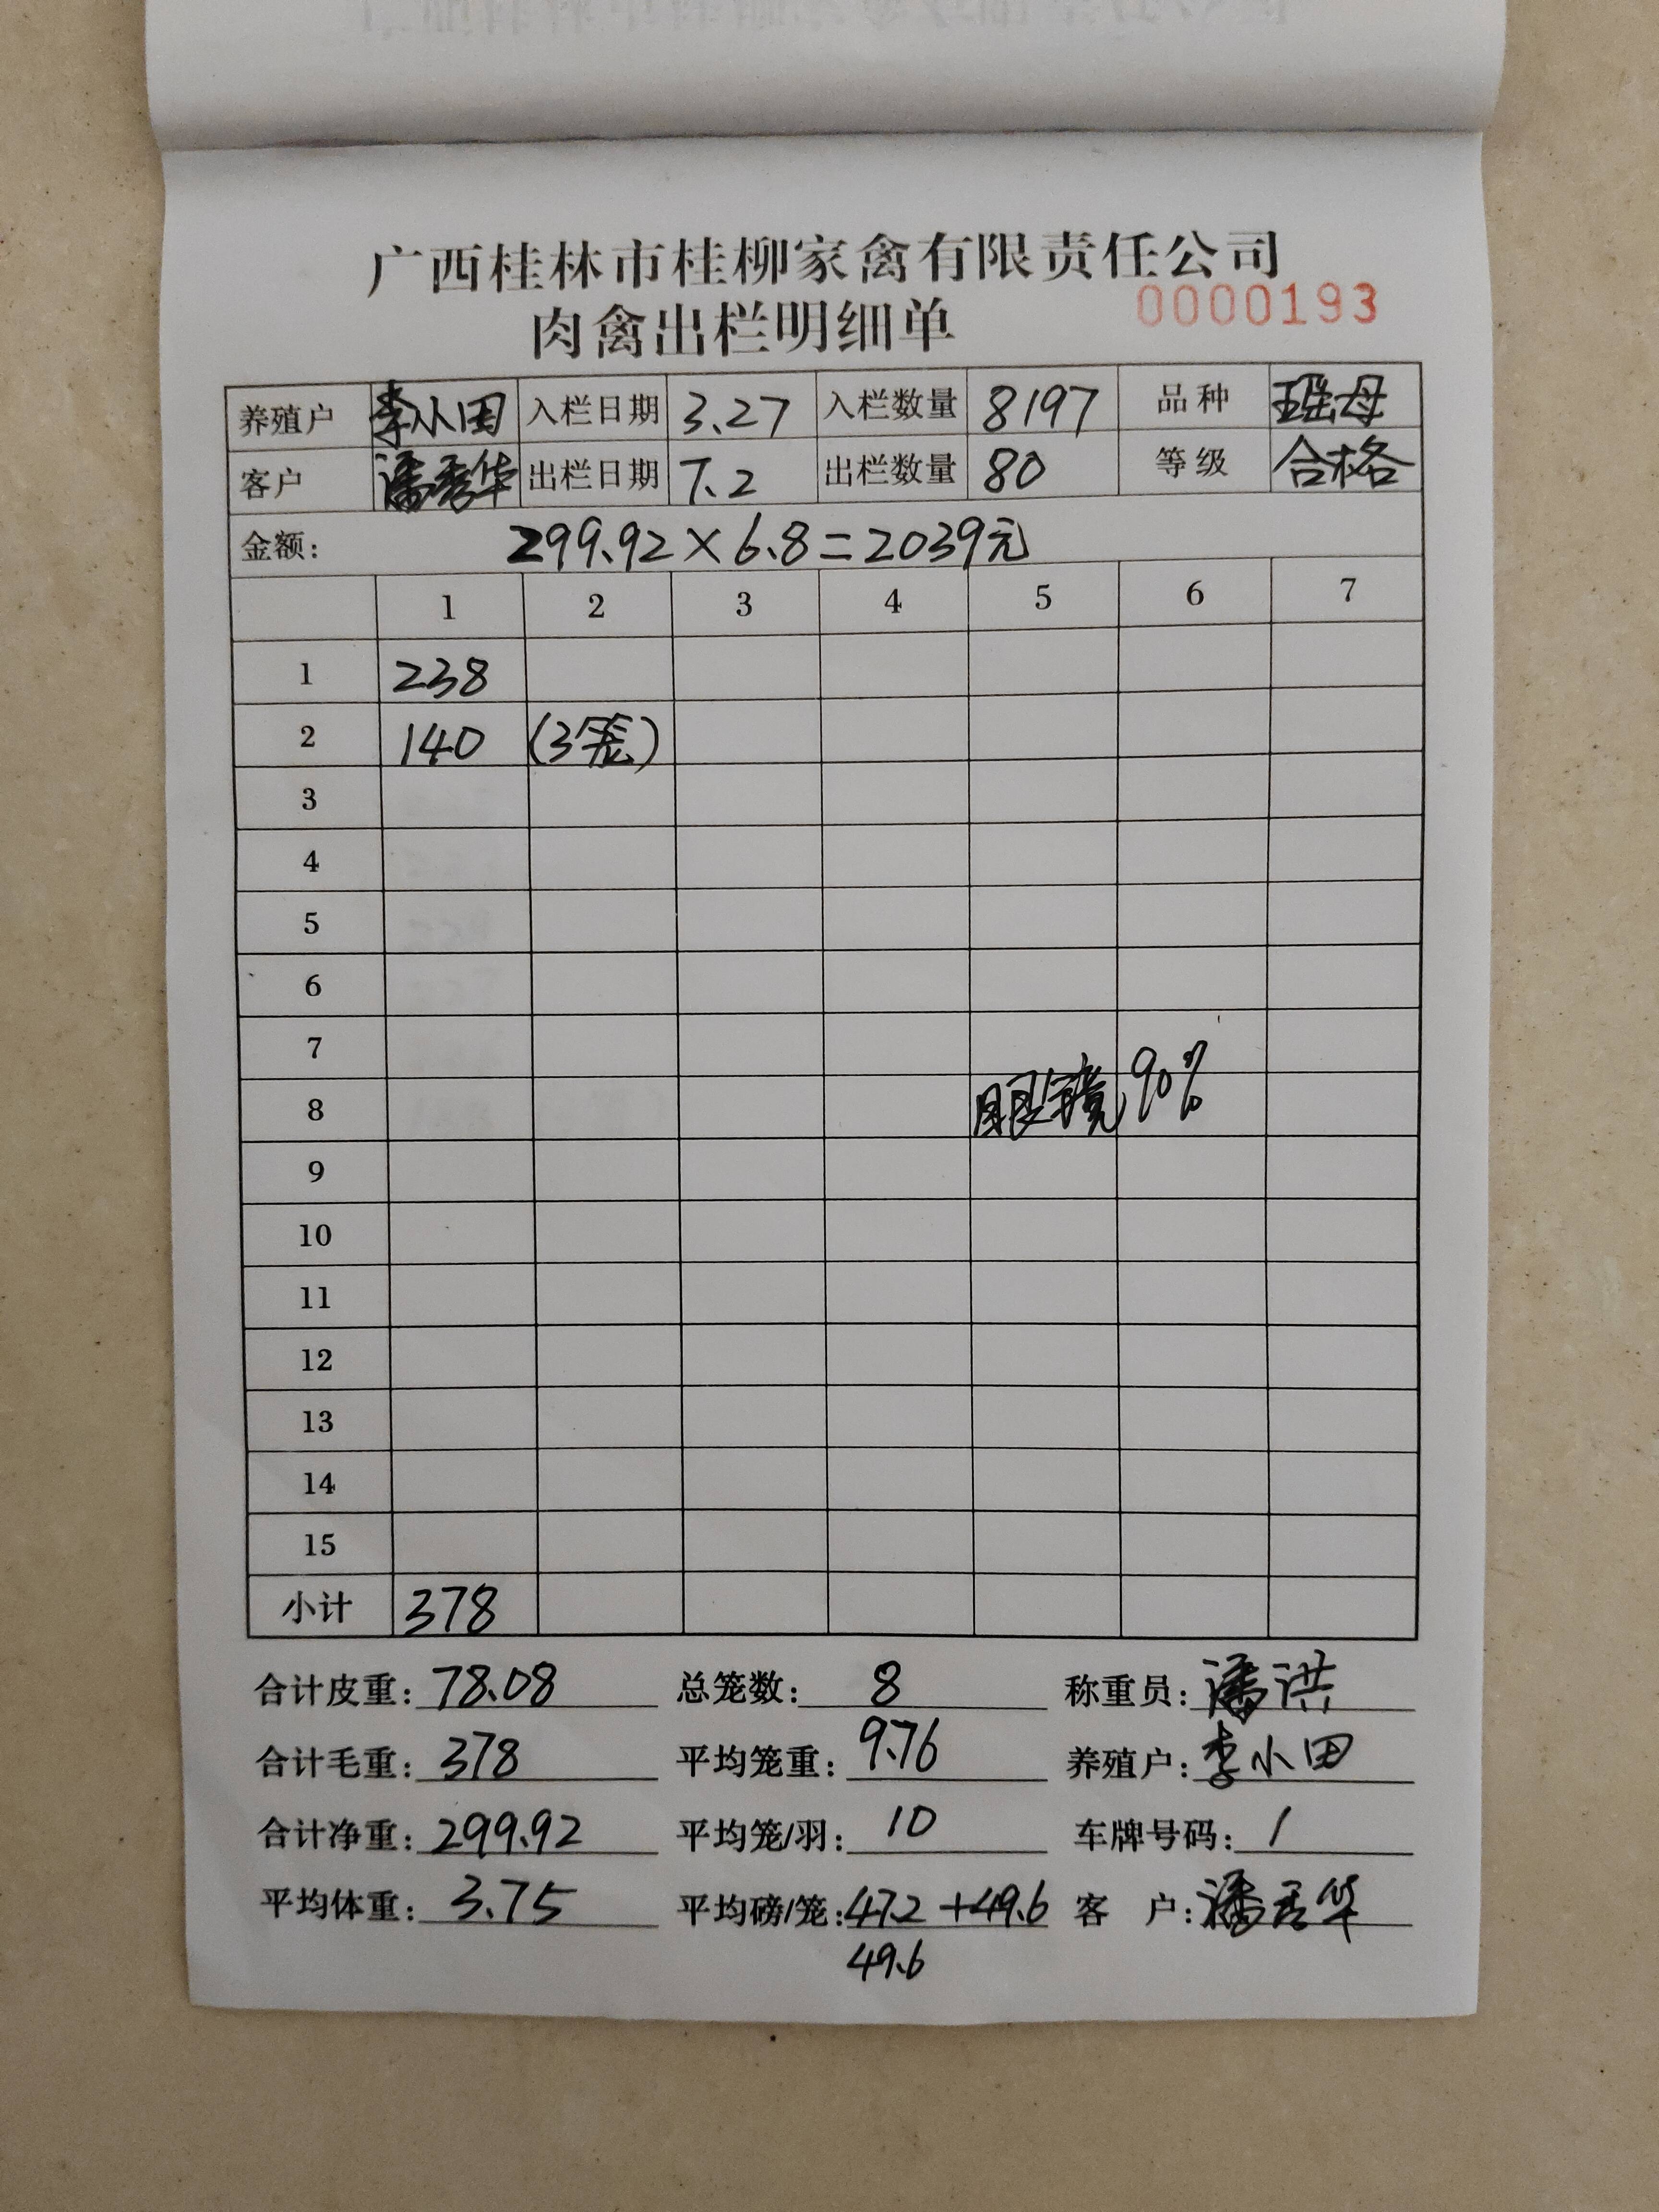 广西桂林市桂柳家禽有限责任公司
肉禽出栏明细单 0000193
养殖户 李小田 入栏日期 3.27 入栏数量 8197 品种 瑶母
客户 潘秀华 出栏日期 7.2 出栏数量 80 等级 合格
金额: 299.92×6.8=2039元
1 2 3 4 5 6 7
1 238
2 140 (3笼)
3
4
5
6
7
8 眼镜90%
9
10
11
12
13
14
15
小计 378
合计皮重: 78.08 总笼数: 8 称重员: 潘洪
合计毛重: 378 平均笼重: 9.76 养殖户: 李小田
合计净重: 299.92 平均笼/羽: 10 车牌号码: 1
平均体重: 3.75 平均磅/笼: 47.2+49.6 客户: 潘秀华
49.6